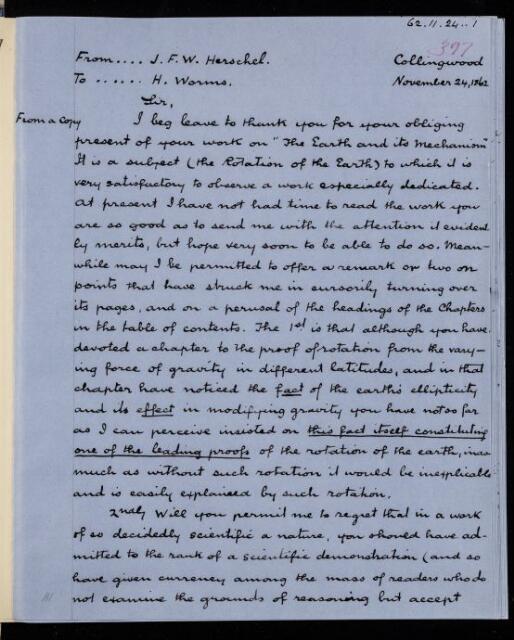 62.11.24..1
397
From.... J. F. W. Herschel. Collingwood
To ...... H. Worms. November 24, 1862
Sir,
From a Copy
I beg leave to thank you for your obliging
present of your work on "The Earth and its Mechanism"
It is a subject (the Rotation of the Earth) to which it is
very satisfactory to observe a work especially dedicated.
At present I have not had time to read the work you
are so good as to send me with the attention it evident
ly merits, but hope very soon to be able to do so. Mean-
while may I be permitted to offer a remark or two on
points that have struck me in cursorily turning over
its pages, and on a perusal of the headings of the Chapters
in the table of contents. The 1st is that although you have
devoted a chapter to the proof of rotation from the vary-
ing force of gravity in different latitudes, and in that
chapter have noticed the fact of the earth's ellipticity
and its effect in modifying gravity you have not so far
as I can perceive insisted on this fact itself constituting
one of the leading proofs of the rotation of the earth, inas
much as without such rotation it would be inexplicable
and is easily explained by such rotation.
2ndly Will you permit me to regret that in a work
of so decidedly scientific a nature, you should have ad-
mitted to the rank of a scientific demonstration (and so
have given currency among the mass of readers who do
not examine the grounds of reasoning but accept